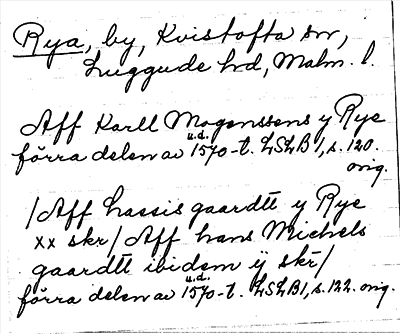 Rya, by, Kvistofta sn,
Luggude hd, Malm. l.
Aff Karll Mogenssens y Rye
förra delen av u.d. 1570-t. LSLB 1, s. 120.
orig.
/Aff hassis gaardtt y Rye
xx skr/ Aff hans Michels
gaardtt ibidem ij skr/
förra delen av u.d. 1570-t. LSLB1, s. 122. orig.